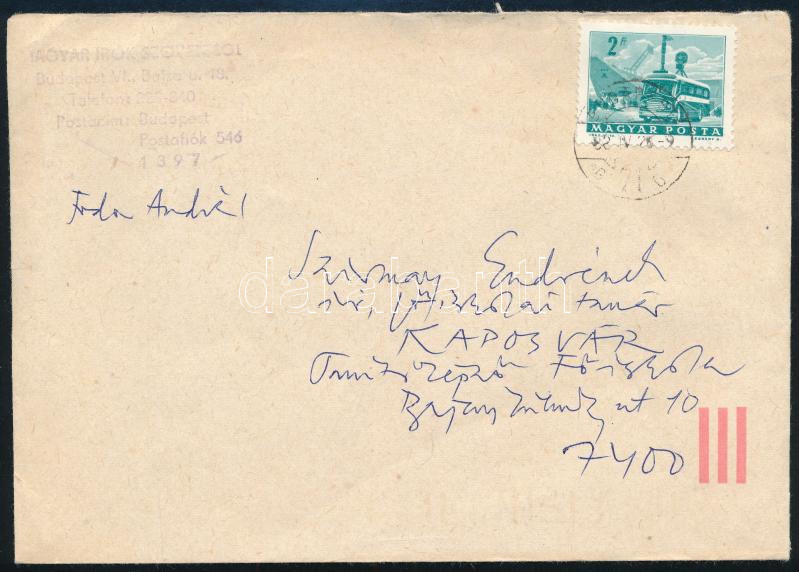 MAGYAR IRÓK SZÖVETSÉGE
Budapest VI., Bajza u. 18.
Telefon:
Postacím: Budapest
Postafiók 546
1397
2 Ft
MAGYAR POSTA
Fodor András
Szirmay Endrének
író, főiskolai tanár
KAPOSVÁR
Tanítóképző Főiskola
Bajcsy Zs. út 10
7400
darabanth